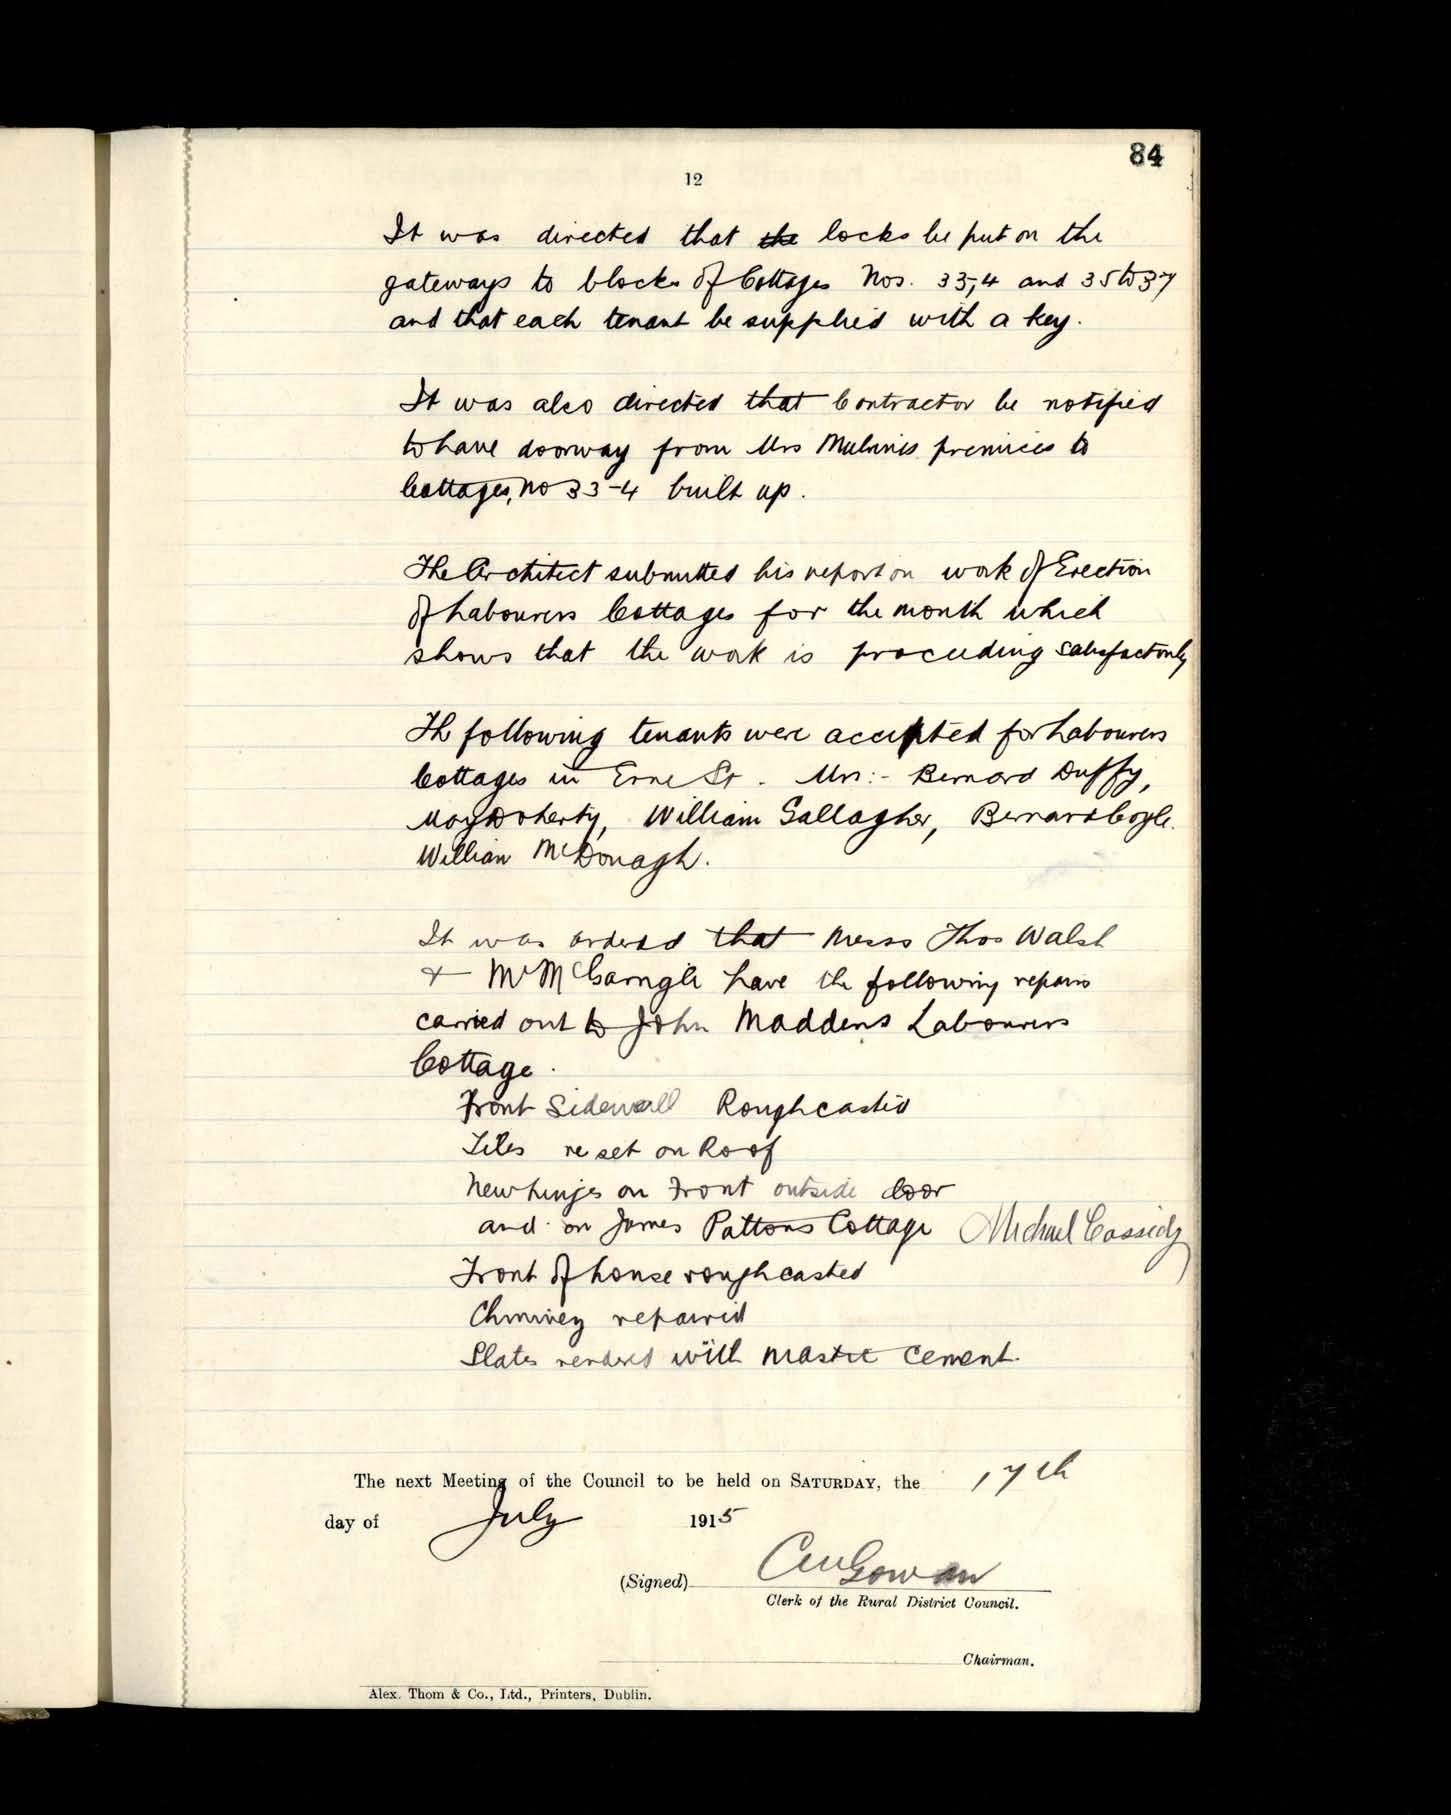 84
12
It was directed that the locks be put on the
gateways to blocks of Cottages Nos. 33,4 and 35 to 37
and that each tenant be supplied with a key.
It was also directed that Contractor be notified
to have doorway from Mrs premises to
Cottages, No 33-4 built up.
The Architect submitted his report on work of Erection
of Labourers Cottages for the month which
shows that the work is proceeding satisfactorily
The following tenants were accepted for Labourers
Cottages in Erne St. :- Bernard Duffy,
Doherty, William Gallagher, Bernard Coyle.
William McDonagh.
It was ordered that Messrs Thos Walsh
+ M McGarrigle have the following repairs
carried out to John Maddens Labourers
Cottage.
Front Sidewall Roughcasted
Tiles reset on Roof
New hinges on Front outside door
and on James Pattons Cottage Michael Cassidy
Front of house roughcasted
Chimney repaired
Slates rendered with mastic cement.
The next Meeting of the Council to be held on SATURDAY, the 17th
day of July 1915
(Signed) Gowan
Clerk of the Rural District Council.
Chairman.
Alex. Thom & Co., Ltd., Printers, Dublin.